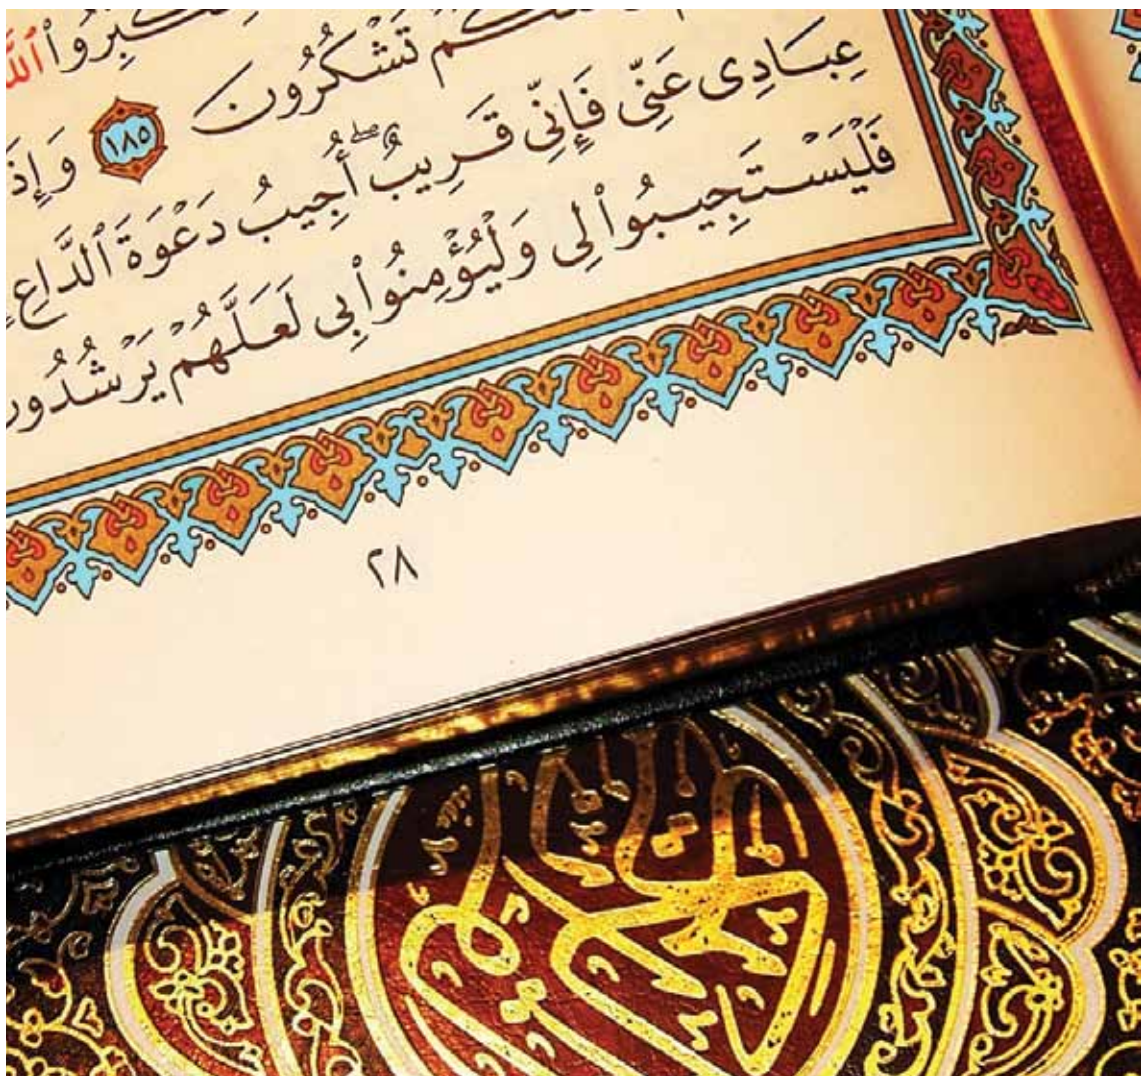 تَشْكُرُونَ ١٨٥
عِبَادِى عَنِّى فَإِنِّى قَرِيبٌۖ أُجِيبُ دَعْوَةَ ٱلدَّاعِ
فَلْيَسْتَجِيبُوا۟ لِى وَلْيُؤْمِنُوا۟ بِى لَعَلَّهُمْ يَرْشُدُو
٢٨